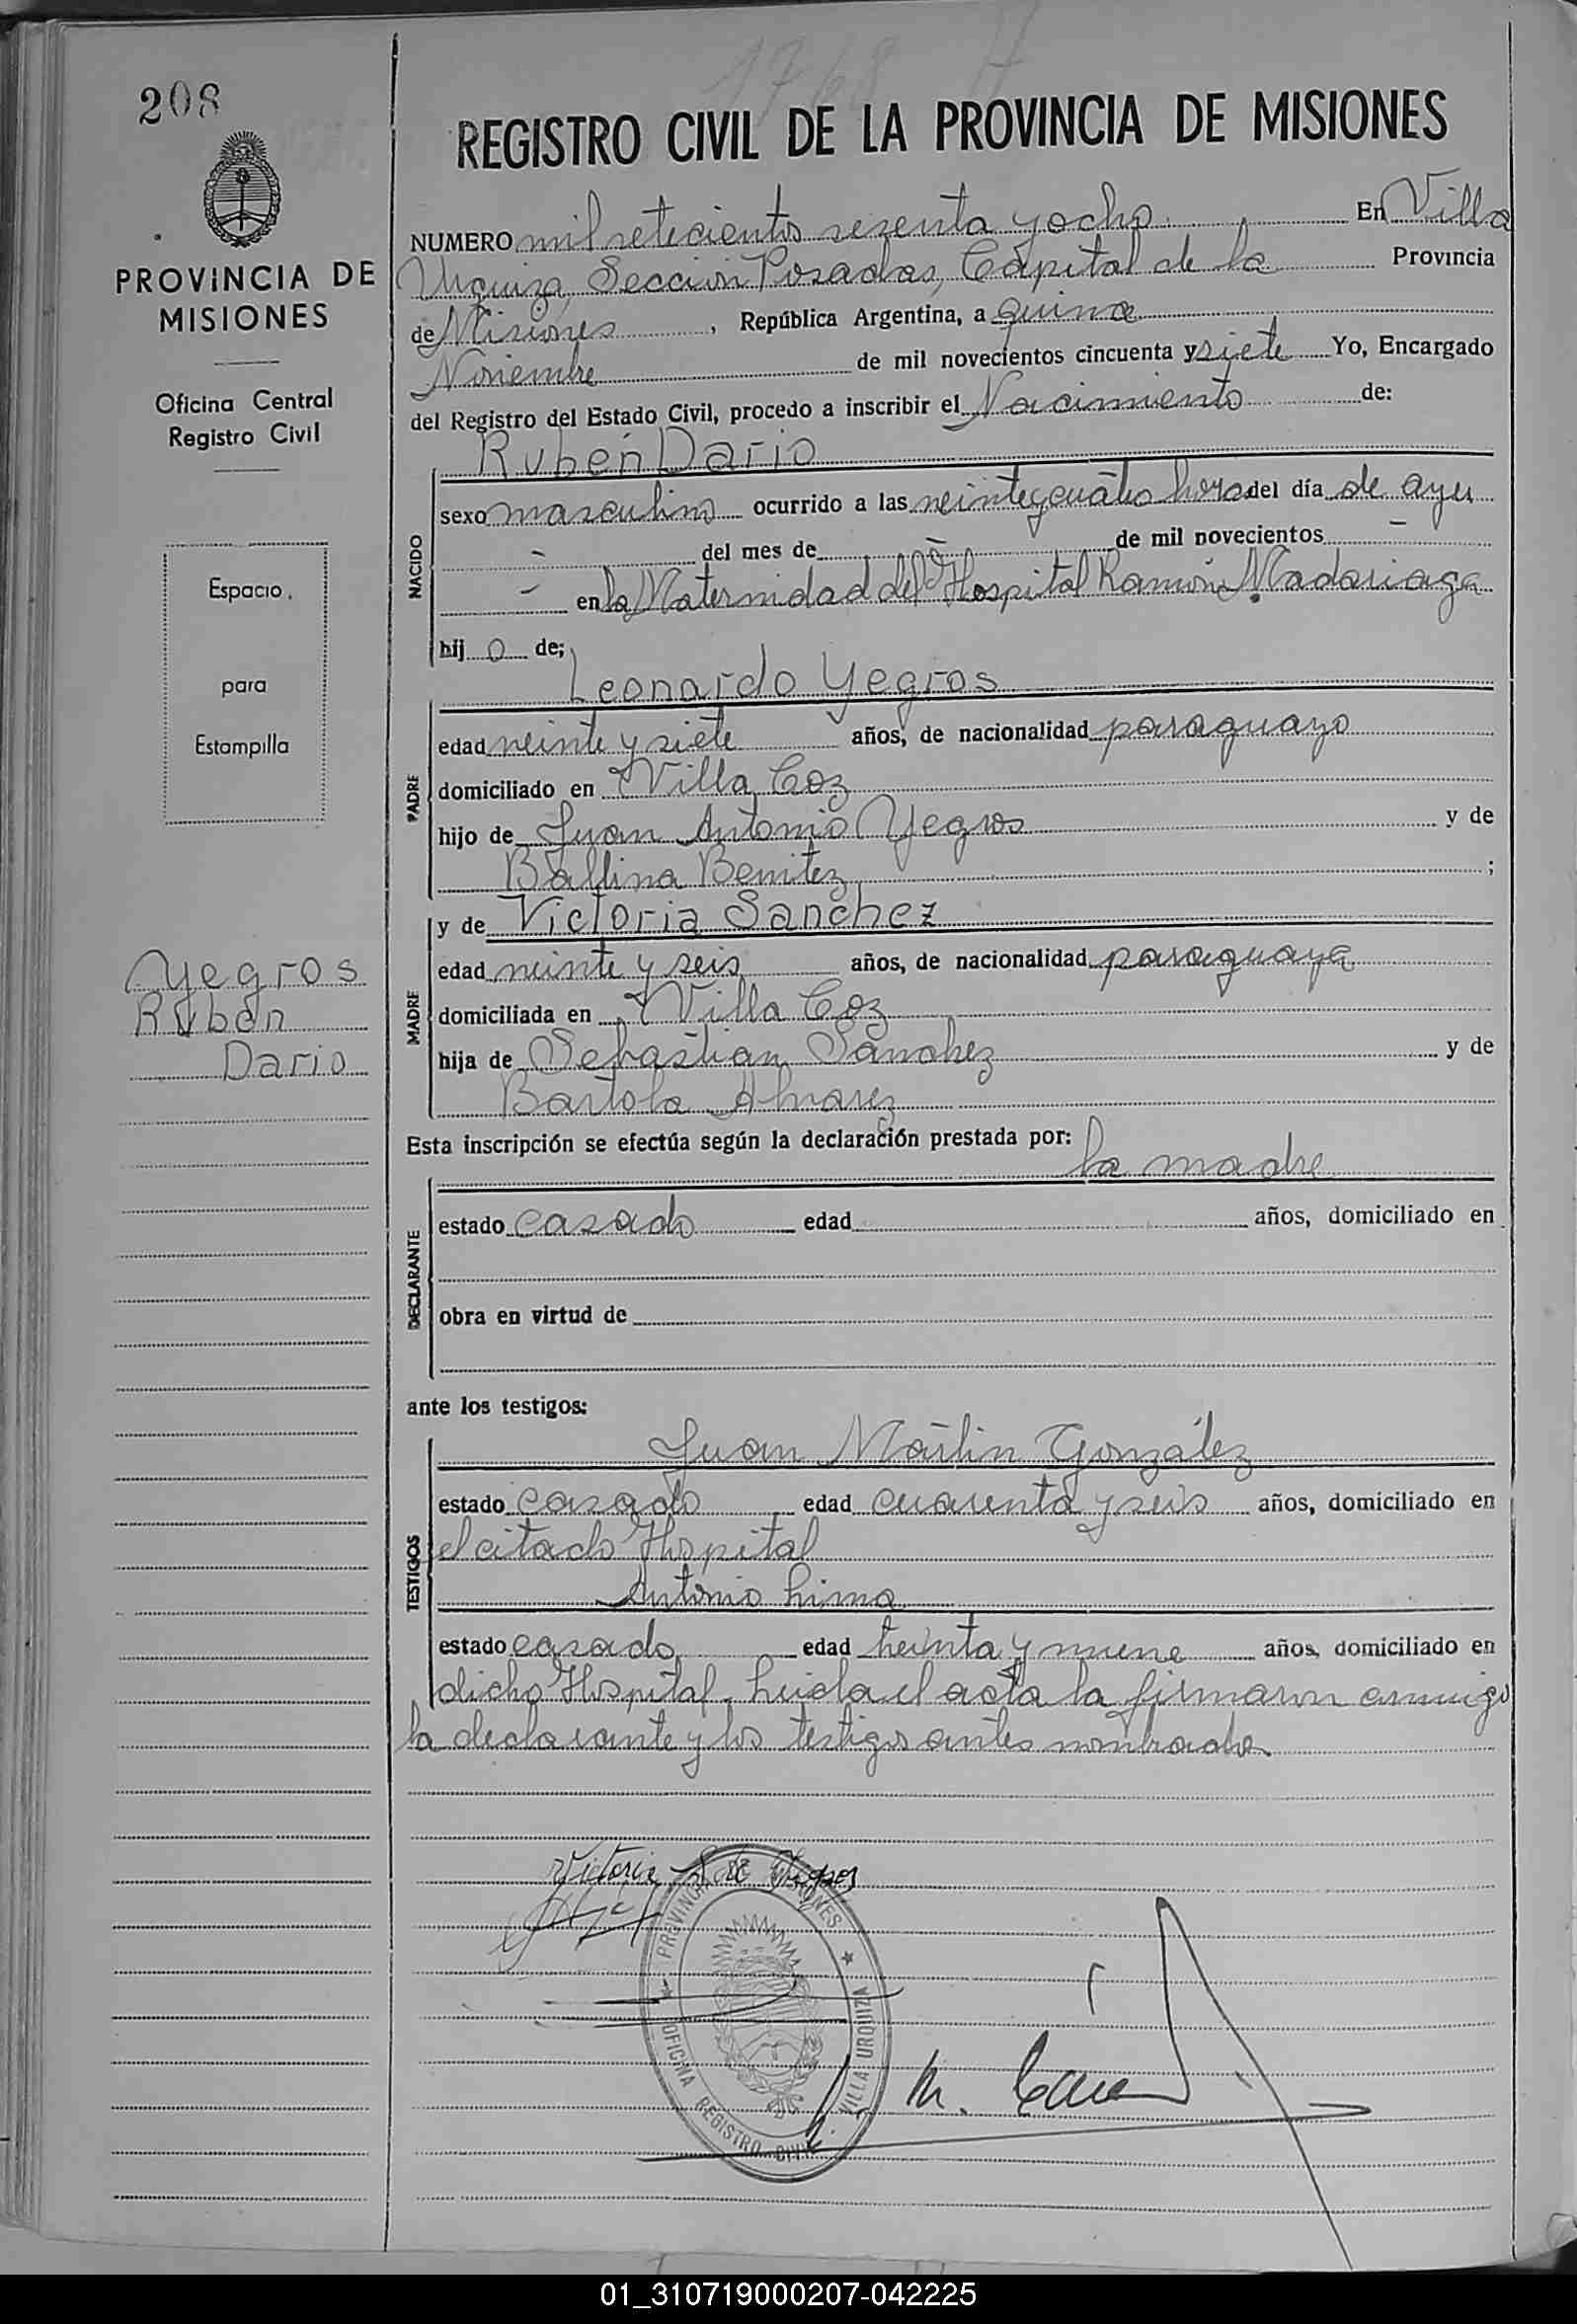 1768
208
REGISTRO CIVIL DE LA PROVINCIA DE MISIONES
PROVINCIA DE
MISIONES
Oficina Central
Registro Civil
Espacio
para
Estampilla
Yegros
Rubén
Dario
NUMERO mil setecientos sesenta y ocho. En Villa
Urquiza, Sección Posadas, Capital de la Provincia
de Misiones, República Argentina, a quince
Noviembre de mil novecientos cincuenta y siete Yo, Encargado
del Registro del Estado Civil, procedo a inscribir el Nacimiento de:
Rubén Dario
NACIDO
sexo masculino ocurrido a las veinte y cuatro horas del día de ayer
- del mes de - de mil novecientos -
- en la Maternidad del Hospital Ramón Madariaga
hijo de;
Leonardo Yegros
PADRE
edad veinte y siete años, de nacionalidad paraguayo
domiciliado en Villa Coz
hijo de Juan Antonio Yegros y de
Balfina Benitez ;
y de Victoria Sanchez
MADRE
edad veinte y seis años, de nacionalidad paraguaya
domiciliada en Villa Coz
hija de Sebastian Sanchez y de
Bartola Alvarez
Esta inscripción se efectúa según la declaración prestada por:
la madre
DECLARANTE
estado casado edad años, domiciliado en
obra en virtud de
ante los testigos:
Juan Martin González
TESTIGOS
estado casado edad cuarenta y seis años, domiciliado en
el citado Hospital
Antonio Lima
estado casado edad treinta y nueve años, domiciliado en
dicho Hospital. Leida el acta la firmaron conmigo
la declarante y los testigos antes nombrados.
Victoria S de Yegros
PROVINCIA DE MISIONES
OFICINA REGISTRO CIVIL
VILLA URQUIZA
01_310719000207-042225